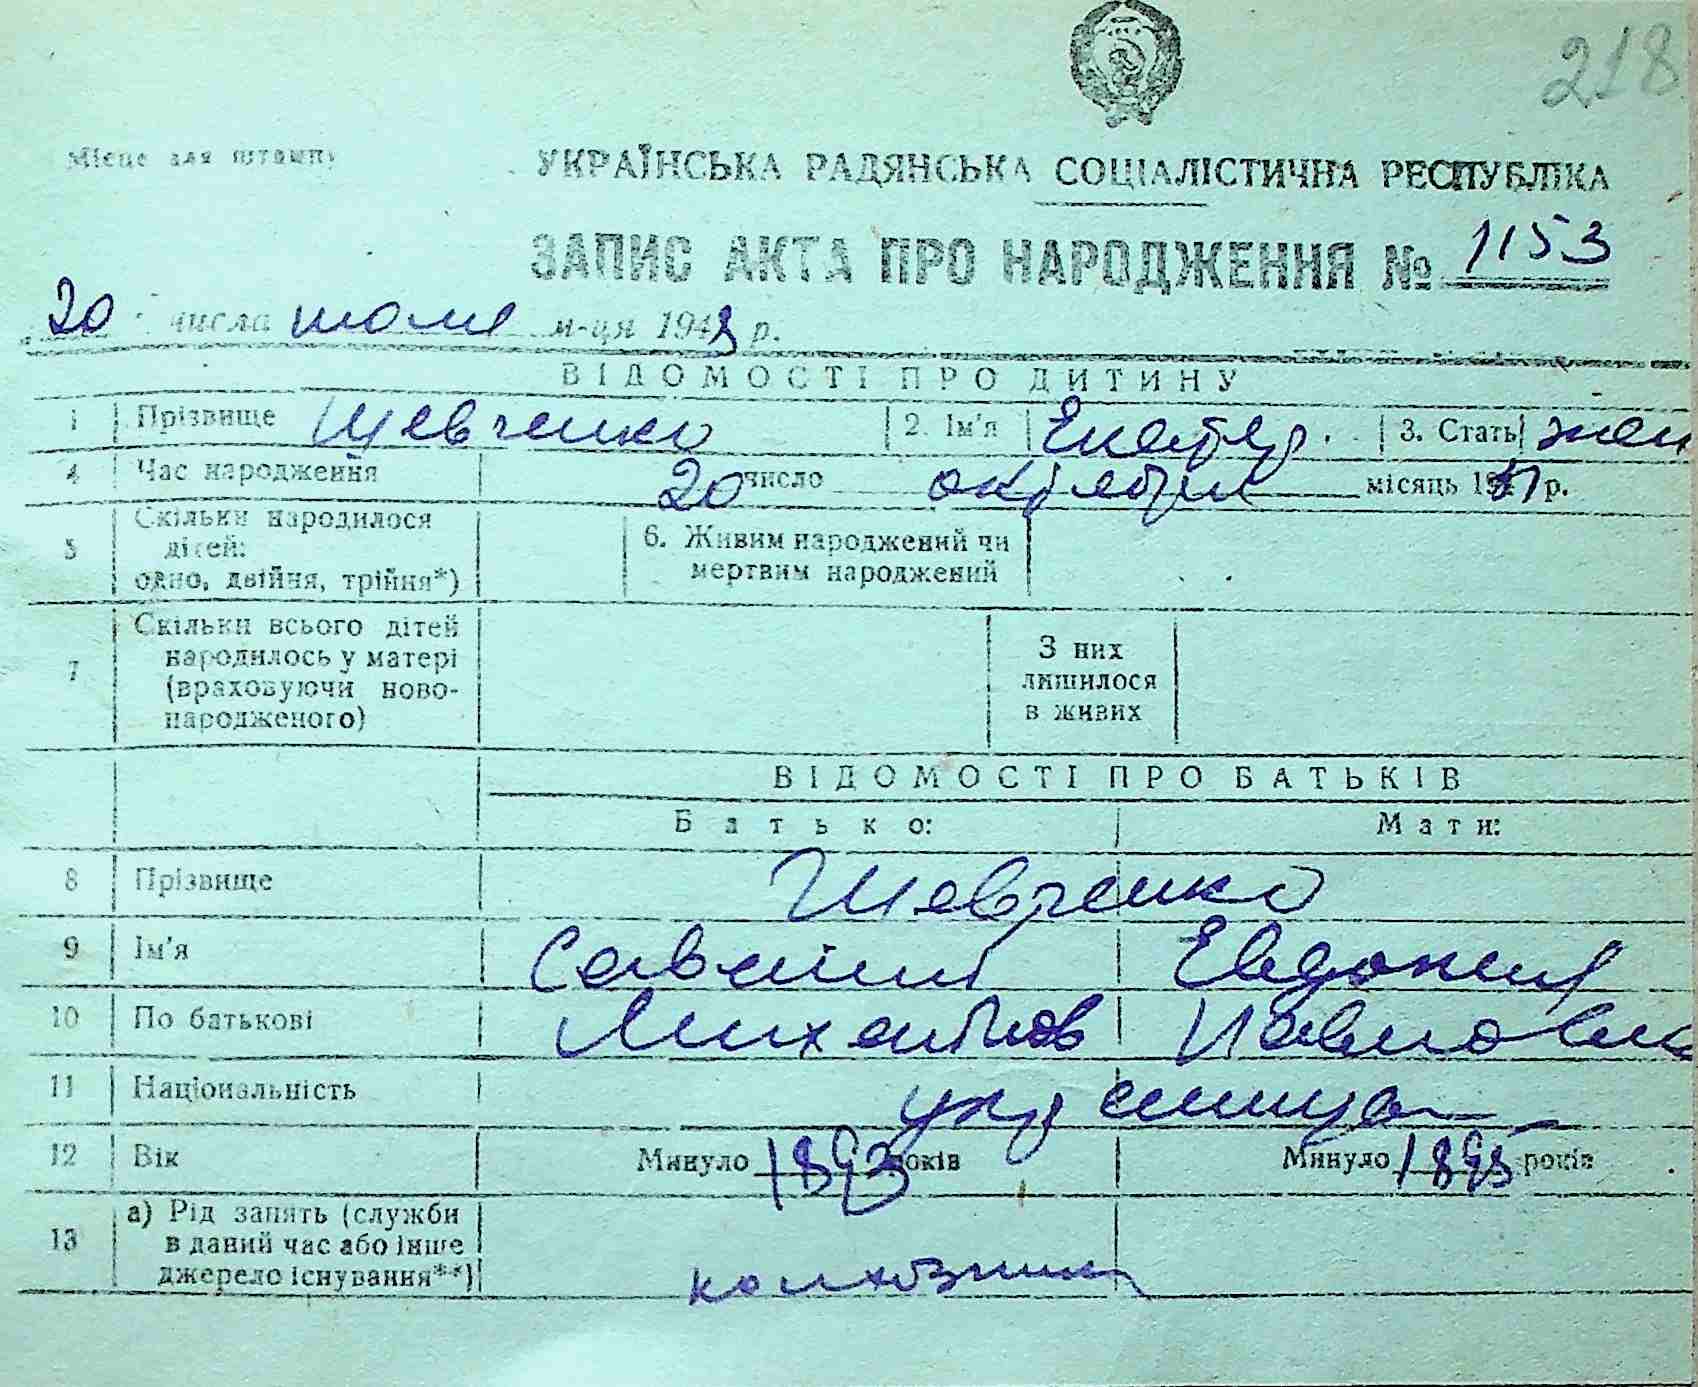 218
Місце для штампу
УКРАЇНСЬКА РАДЯНСЬКА СОЦІАЛІСТИЧНА РЕСПУБЛІКА
ЗАПИС АКТА ПРО НАРОДЖЕННЯ № 1153
20 числа июля м-ця 1948 р.
ВІДОМОСТІ ПРО ДИТИНУ
1 Прізвище Шевченко 2. Ім'я Екатер. 3. Стать жен
4 Час народження 20 число октября місяць 19 р.
5 Скільки народилося дітей: одно, двійня, трійня*) 6. Живим народжений чи мертвим народжений
7 Скільки всього дітей народилось у матері (враховуючи новонародженого) З них лишилося в живих
ВІДОМОСТІ ПРО БАТЬКІВ
Батько: Мати:
8 Прізвище Шевченко
9 Ім'я Савелий Евдокия
10 По батькові Михайлов Павловна
11 Національність украинцы
12 Вік Минуло 1893 років Минуло 1895 років
13 а) Рід занять (служби в даний час або інше джерело існування**) колхозник